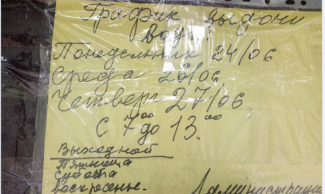 График выдачи
воды
Понедельник 24/06
Среда 26/06
Четверг 27/06
с 7⁰⁰ до 13.⁰⁰
Выходной
Пятница
Суббота
Воскресенье.
Администрация